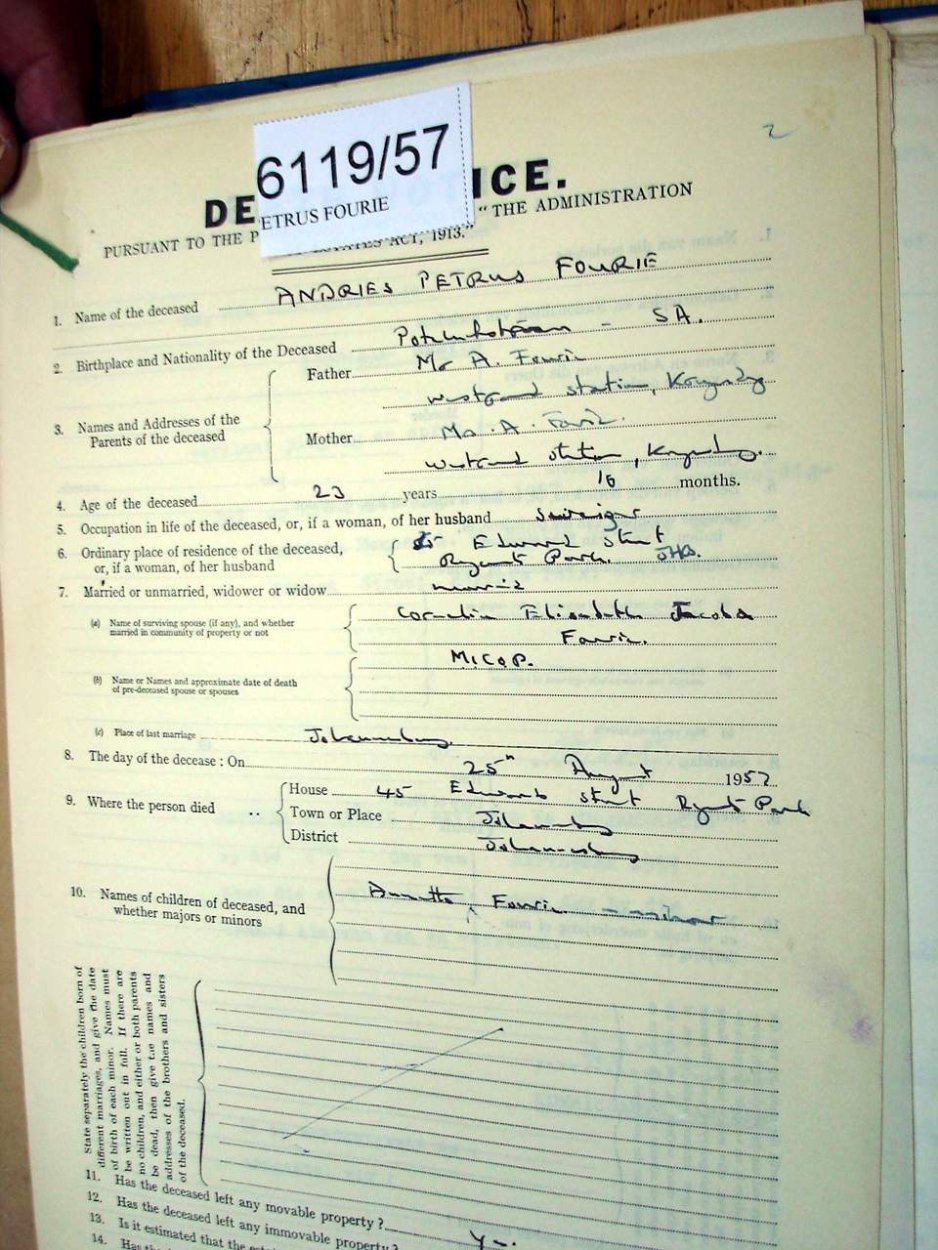 2
6119/57
ETRUS FOURIE
DE ICE.
PURSUANT TO THE P "THE ADMINISTRATION
ESTATES ACT, 1913."
1. Name of the deceased ANDRIES PETRUS FOURIE
2. Birthplace and Nationality of the Deceased - SA.
3. Names and Addresses of the Parents of the deceased
Father Mr A. Fourie
station,
Mother A. Fourie
station,
4. Age of the deceased 23 years 10 months.
5. Occupation in life of the deceased, or, if a woman, of her husband
6. Ordinary place of residence of the deceased, or, if a woman, of her husband
Edward street
Regents Park. JHB.
7. Married or unmarried, widower or widow married
(a) Name of surviving spouse (if any), and whether married in community of property or not
Cornelia Elizabeth Jacoba
Fourie.
MICOP.
(b) Name or Names and approximate date of death of pre-deceased spouse or spouses
(c) Place of last marriage Johannesburg.
8. The day of the decease : On 25th August 1957
9. Where the person died ..
House 45 Edward street Regents Park
Town or Place Johannesburg
District Johannesburg
10. Names of children of deceased, and whether majors or minors
Fourie - minor
State separately the children born of
different marriages, and give the date
of birth of each minor. Names must
be written out in full. If there are
no children, and either or both parents
be dead, then give the names and
addresses of the brothers and sisters
of the deceased.
11. Has the deceased left any movable property ?
12. Has the deceased left any immovable property?
13. Is it estimated that the
14. Has